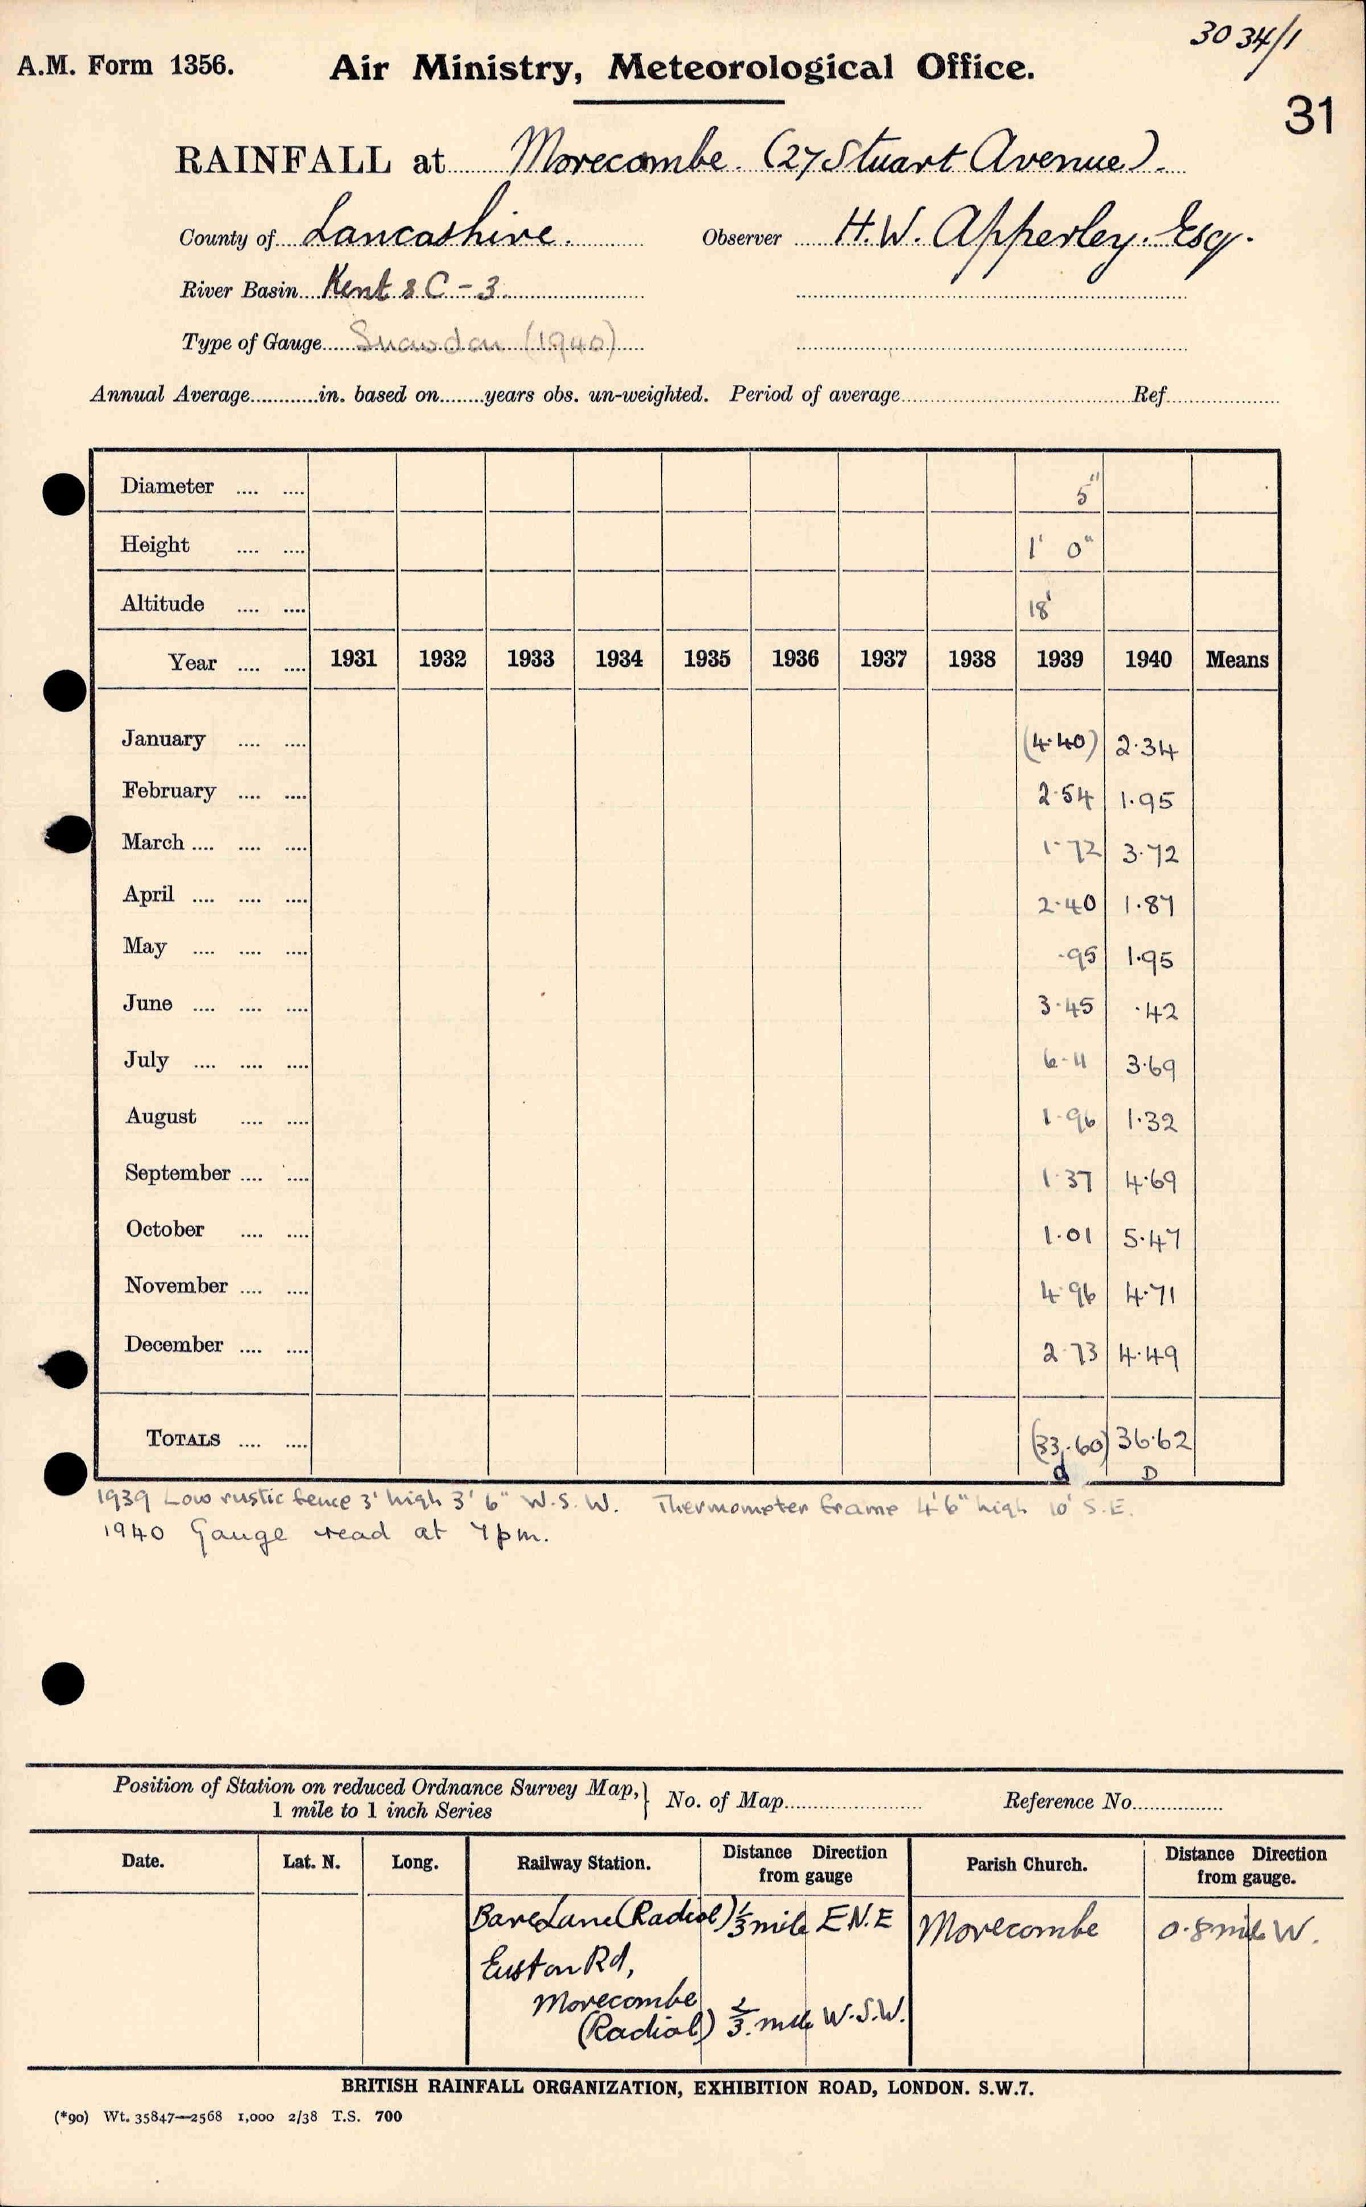 30 34/1
A.M. Form 1356. Air Ministry, Meteorological Office.
31
RAINFALL at Morecambe. (27 Stuart Avenue).
County of Lancashire. Observer H.W. Apperley. Esq.
River Basin Kent & C - 3.
Type of Gauge Snowdon (1940)
Annual Average in. based on years obs. un-weighted. Period of average Ref
Diameter 5"
Height 1' 0"
Altitude 18'
Year 1931 1932 1933 1934 1935 1936 1937 1938 1939 1940 Means
January (4.40) 2.34
February 2.54 1.95
March 1.72 3.72
April 2.40 1.87
May .95 1.95
June 3.45 .42
July 6.11 3.69
August 1.96 1.32
September 1.37 4.69
October 1.01 5.47
November 4.96 4.71
December 2.73 4.49
TOTALS (33.60) 36.62
D
1939 Low rustic fence 3' high 3' 6" W.S.W. Thermometer frame 4'6" high 10' S.E.
1940 Gauge read at 7pm.
Position of Station on reduced Ordnance Survey Map,} No. of Map Reference No.
1 mile to 1 inch Series
Date. Lat. N. Long. Railway Station. Distance Direction from gauge Parish Church. Distance Direction from gauge.
Bare Lane (Radial) 1/3 mile E N.E Morecombe 0.8 mile W.
Euston Rd,
Morecombe
(Radial) 2/3. mile W.S.W.
BRITISH RAINFALL ORGANIZATION, EXHIBITION ROAD, LONDON. S.W.7.
(*90) Wt. 35847—2568 1,000 2/38 T.S. 700